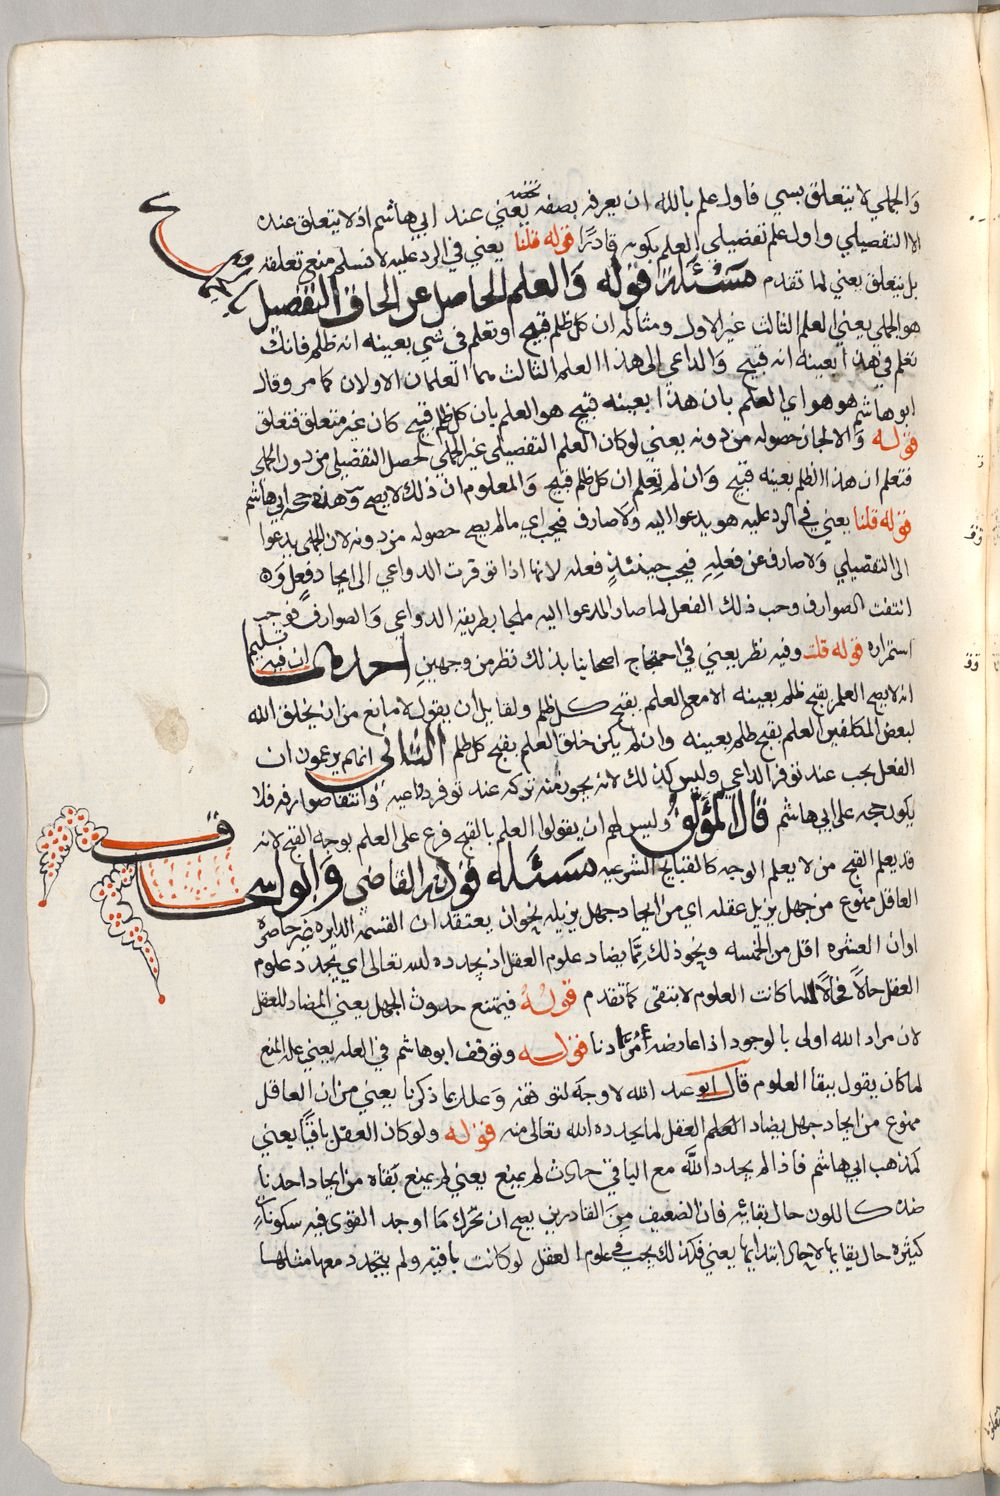 والجملي لا يتعلق بشي فاول علم بالله ان يعرفه بصفه تخصه يعني عند ابي هاشم اذ لا يتعلق عنده
الا التفصيلي واول علم تفصيلي العلم بكونه قادرًا قوله قلنا يعني في الرد عليه لا نسلم منع تعلقه
بل يتعلق يعني لما تقدم مسئلة قوله والعلم الحاصل عن الحاق التفصيل
هو الجملي يعني العلم الثالث غير الاول ومثاله ان كل ظلم قبيح او تعلم في شي بعينه انه ظلم فانك
تعلم في هذا بعينه انه قبيح والداعي الى هذا العلم الثالث هما العلمان الاولان كما مر وقال
ابو هاشم هو هو اي العلم بان هذا بعينه قبيح هو العلم بان كل ظلم قبيح كان غير متعلق فتعلق
قوله والا لجاز حصوله من دونه يعني لو كان العلم التفصيلي غير الجملي لحصل التفصيلي من دون الجملي
فتعلم ان هذا الظلم بعينه قبيح وان لم تعلم ان كل ظلم قبيح والمعلوم ان ذلك لا يصح وهذه حجه ابي هاشم
قوله قلنا يعني في الرد عليه هو يدعوا اليه ولا صارف فيجب اي ما لم يصح حصوله من دونه لان الجملي يدعوا
الى التفصيلي ولا صارف عن فعله فيجب حينئذٍ فعله لانها اذا توفرت الدواعي الى ايجاد فعل و
انتفت الصوارف وجب ذلك الفعل لما صار المدعوا اليه ملجا بطريقة الدواعي والصوارف فوجب
استمراره قوله قلت وفيه نظر يعني في احتجاج اصحابنا بذلك نظر من وجهين احدهما ان فيه تسليم
انه لا يصح العلم بقبح ظلم بعينه الا مع العلم بقبح كل ظلم ولقايل ان يقول لا مانع من ان يخلق الله
لبعض المكلفين العلم بقبح ظلم بعينه وان لم يكن خلق العلم بقبح كل ظلم الثاني انهم يزعمون ان
الفعل يجب عند توفر الداعي وليس كذلك لانه يجوز منه تركه عند توفر دواعيه وانتفا صوارفه فلا
يكون حجه على ابي هاشم قال المؤلف وليس لهم ان يقولوا العلم بالقبح فرع على العلم بوجه القبح لانه
قد يعلم القبح من لا يعلم الوجه كالقبايح الشرعيه مسئله قوله القاضي وابو اسحاق
العاقل ممنوع من جهل يزيل عقله اي من ايجاد جهل يزيله نحو ان يعتقد ان القسمه الدايره غير حاصره
او ان العشره اقل من الخمسه ونحو ذلك مما يضاد علوم العقل اذ يجدده الله تعالى اي يجدد علوم
العقل حالاً فحالاً لما كانت العلوم لا تبقى كما تقدم قوله فيمتنع حدوث الجهل يعني المضاد للعقل
لان مراد الله اولى بالوجود اذا عارضه مرادنا قوله وتوقف ابو هاشم في العله يعني عله المنع
لما كان يقول ببقا العلوم قال ابو عبد الله لا وجه لتوقفه وعلله بما ذكرنا يعني من ان العاقل
ممنوع من ايجاد جهل يضاد العلم العقل لما يجدده الله تعالى منه قوله ولو كان العقل باقيًا يعني
كمذهب ابي هاشم فاذا لم يجدد الله مع الباقي حادث لم يمنع يعني لم يمنع بقاه من ايجاد احدنا
ضده كاللون حال بقائه فان الضعيف من القادرين يصح ان تحرك ما اوجد القوى فيه سكونات
كثيره حال بقايها لا حال ابتدايها يعني فكذلك يجب في علوم العقل لو كانت باقيه ولم يتجدد معها مثلها